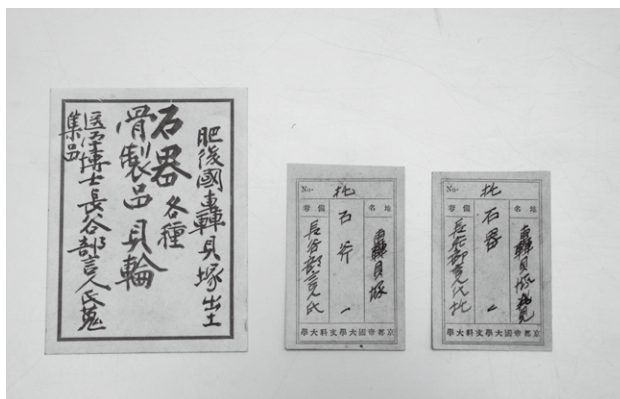 肥後國轟貝塚出土
石器各種
骨製品貝輪
医学博士長谷部言人氏蒐
集品
No. 北
地名
轟貝塚
石斧 一
備考
長谷部言人氏
京都帝國大學文科大學
No. 北
地名
轟貝塚発見
石器 二
備考
長谷部言人氏
京都帝國大學文科大學